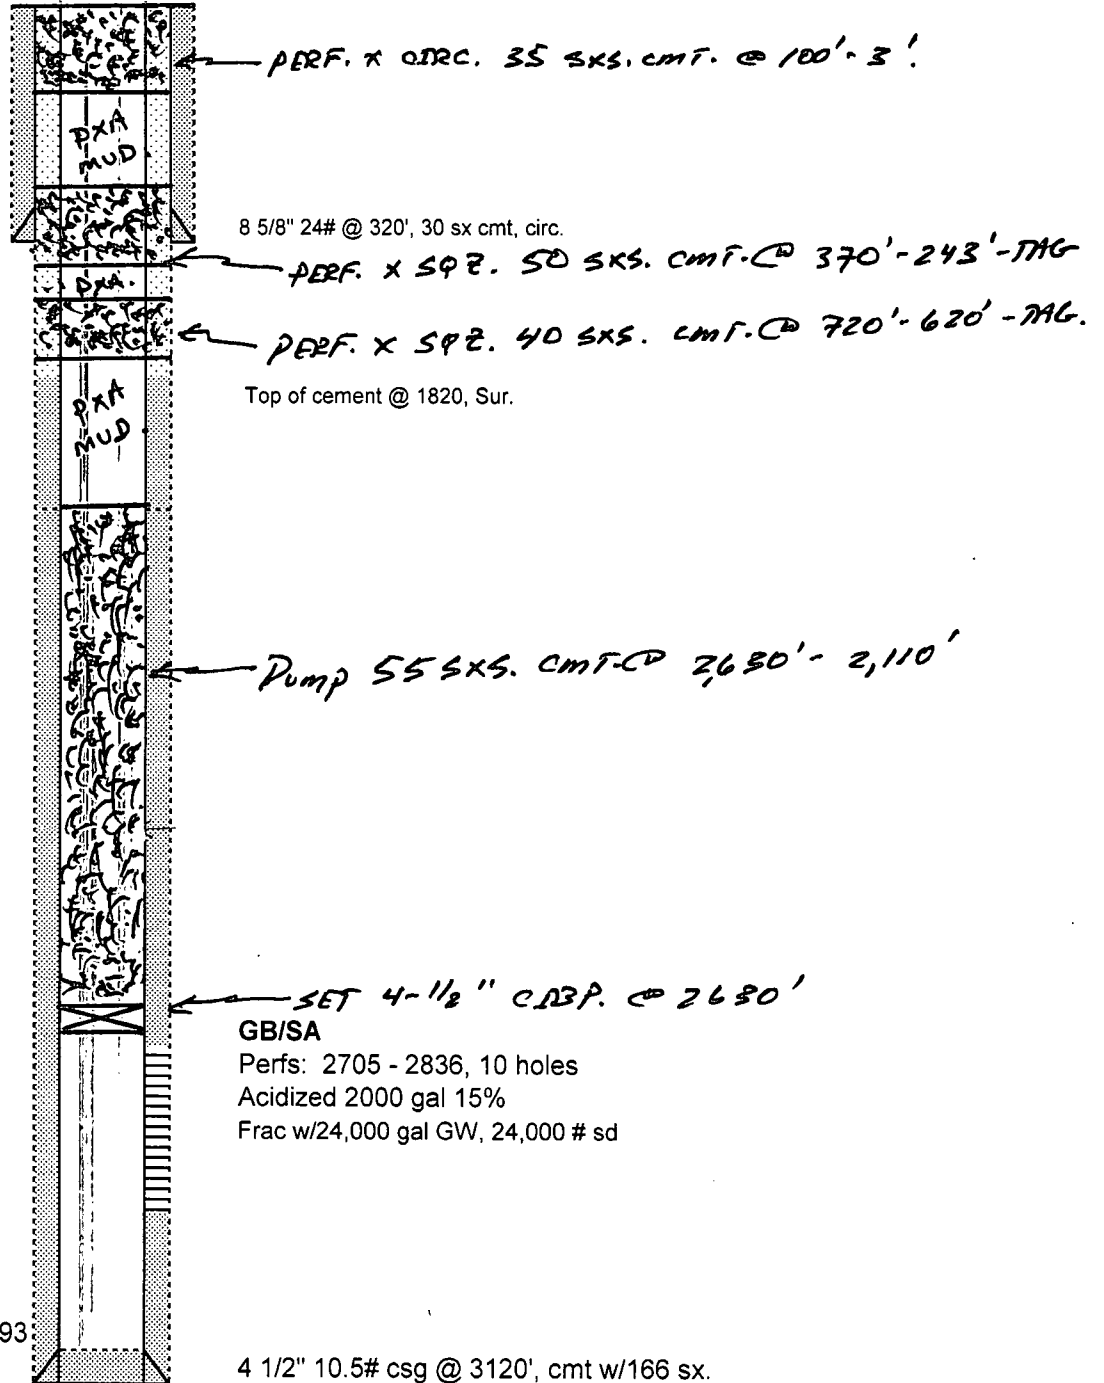 PERF. X CIRC. 35 SXS. CMT. @ 100'- 3'.
PXA
MUD
8 5/8" 24# @ 320', 30 sx cmt, circ.
PERF. X SQZ. 50 SXS. CMT. @ 370'-243'-TAG
PXA.
PERF. X SQZ. 40 SXS. CMT. @ 720'-620'-TAG.
Top of cement @ 1820, Sur.
PXA
MUD
Pump 55 SXS. CMT. @ 2,630'- 2,110'
SET 4-1/2" CIBP. @ 2630'
GB/SA
Perfs: 2705 - 2836, 10 holes
Acidized 2000 gal 15%
Frac w/24,000 gal GW, 24,000 # sd
93
4 1/2" 10.5# csg @ 3120', cmt w/166 sx.